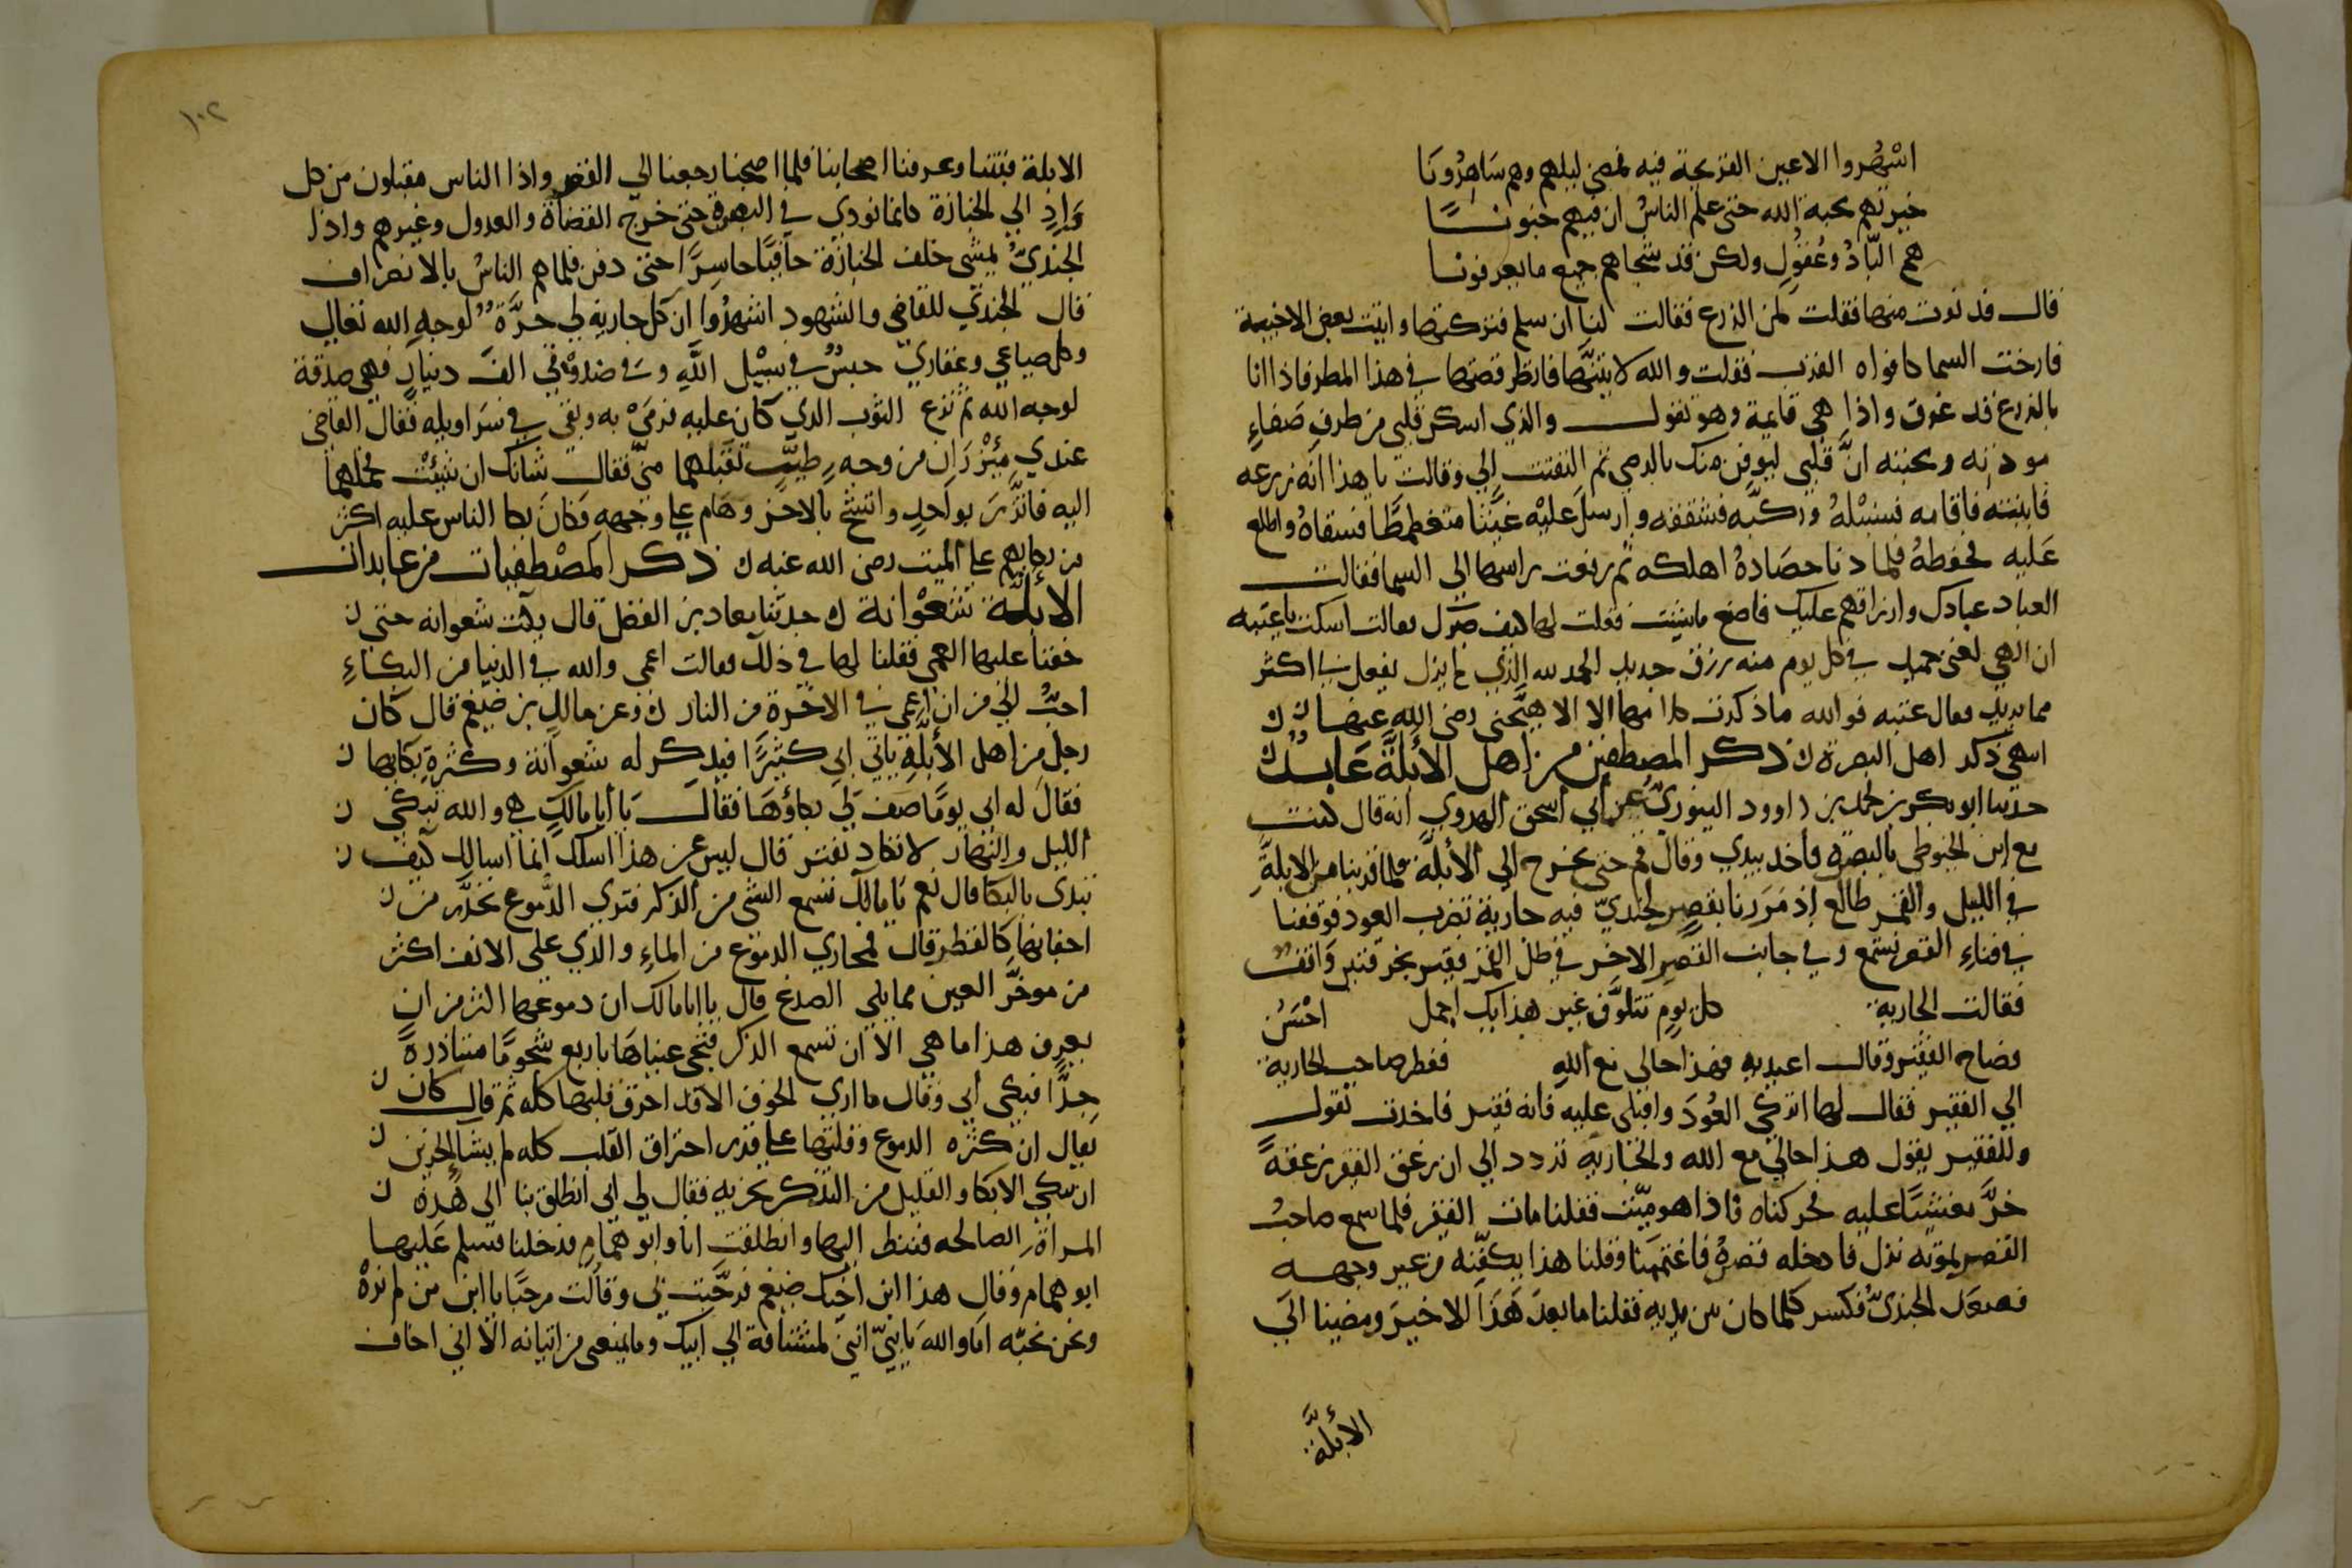 اسْهُروا الاعين القريحة فيه فمضى ليلهم وهم سَاهِرُونَا
حيرتهم محبة الله حتى علم الناسُ ان فيهم جنونــــًا
هم البّادُ وعُقوُلٍ ولكن قد شجاهم جميع ما يعرفونـا
قال فدنوت منها فقلت لمن الزرع فقالت لنا ان سلم فتركتها واتيت بعض الاخبية
فارخت السما كافواه القرب فقلت والله لاتينَّها فانظر قصتها في هذا المطر فاذا انا
بالزرع قد غرق واذا هي قايمة وهو تقول والذي اسكن قلبي من طرف صفاءِ
مودته ومحبته انَّ قلبي ليوقن منك بالرضى ثم التفتت الي وقالت يا هذا انه زرعه
فانبته فاقامه فسنبْلهُ وركبّه فشققه وارسل عليْه غيثا متغطمطًا فسقاهُ واطلع
عَليه فحفظهُ فلما دنا حصَادهُ اهلكه ثم رفعت راسها الي السما فقالت
العباد عبادك وارزاقهم عليك فاصنع ما شيت فقلت لها كيف صبرك فقالت اسكت يا عتبه
ان الهي لغني حميد في كل يوم منه رزق جديد الحمد لله الذي لم يزل يفعل بي اكثر
مما يريد فقال عتبه فوالله ما ذكرت كلامها الا الا هيّجني رضي الله عنها ن ن
انتهى ذكر اهل البصرة ن ذكر المصطفين من اهل الأبلَّة عابــدٌ
حدثنا ابو بكر بن محمد بن داوود الدينوري عن أبي اسحق الهروي انه قال كنت
مع ابن الخيوطي بالبصره فاخذ بيدي وقال قم حتى نخرج الي الأبلة فلما قربنا من الابلَّةِ
في الليل والقمر طالع إذ مَررنا بقصرٍ لجنديّ فيه جارية تضرب العود فوقفنا
في فناءِ القصر نستمع وفي جانب القصر الاخر في ظل القمر فقير بخرقتين وَاقفٌ
فقالت الجارية كل يوم تتلوَّن غير هذا بك اجمل احْسَنُ
فصاح الفقير وقال اعيديه فهذا حالي مع اللهِ فنظر صاحب الجارية
الي الفقير فقال لها اتركي العُودَ واقبلى عليه فانه فقير فاخذت تقول
وللفقير يقول هذا حالي مع الله والجاريه تردد الي ان زعق الفقير زعقهً
خرَّ مغشيًّا عليه فحركناه فاذا هو ميّت فقلنا مات الفقير فلما سمع صاحبُ
القصر بموته نزل فادخله قصرهُ فاغتممنا وقلنا هذا يكفّنه من غير وجهــه
فصعَد الجنديُّ فكسر كلما كان بين يديه فقلنا ما بعدَ هَذَا الا خيرٌ ومضينا الَي
الأبلَّة
١٠٢
الابلة فبتنا وعرفنا اصحابنا فلما اصبحنا رجعنا الي القصر واذا الناس مقبلون من كل
وَادِ الي الجنازة كانما نودي في البصرة حتى خرج القضاة والعدول وغيرهم واذا
الجنديّ يمشى خلف الجنازة حافيًا حاسِرًا حتى دفن فلما هم الناسُ بالانصراف
قال الجندي للقاضي والشهود اشهدُوا ان كل جارية لي حرَّة لوجهِ الله تعالي
وكل ضياعي وعقاري حبسٌ في سبيْل اللَّهِ وَفي صندوْقي الفَ دينارٍ فهي صدقة
لوجه الله ثم نزع الثوب الذي كان عليه فرَمىْ به وبقى في سَراويله فقال القاضى
عندي مِئْزرَانِ من وجهٍ طيِّبٍ تقبلهما منيّ فقال شانك ان شئت فحملهما
اليه فاتَّزرَ بواحدٍ واتشح بالاخر وهَام علي وجههِ وَكان بكا الناس عليه اكثر
من بكايهم علي الميت رضى الله عنه ن ذكر المصْطفيات من عابدات
الأبلَّة شعْوانة ن حدثنا معاد بن الفضل قال بكت شعوانه حتى ن
خفنا عليها العمى فقلنا لها في ذلك فقالت اعمى والله في الدنيا من البكاءِ
احبُّ الَي من ان اعمى في الآخرة من النار ن وعن مالكِ بن ضيغم قال كان
رجل من اهل الأبلَّةِ ياتي ابي كثيرًا فيذكر له شعوانة وكثرةِ بكايها ن
فقال له ابي يومًا صَف لي بكاؤهَا فقال يا أبا مالكٍ هي والله تبكي ن
الليل والنهار لا تكاد تفتر قال ليس عن هذا اسلك انما اسالك كيف ن
تبدى بالبكا قال نعم يا مالك تسمع الشى من الذكر فترى الدُّموع تخذَّر من ن
اجفانها كالقطر قال فمجاري الدموع من الماءِ والذي على الانف اكثر
من موخَّر العين مما يلي الصدغ قال يا ابا مالك ان دموعها اكثر من ان
يعرف هذا ما هي الا ان تسمع الذكر فتجى عيناهَا باربع شجومًا متباذرةً
جدًّا فبكى أبي وقال ما اري الخوف الا قد احرق قلبها كله ثم قال كان ن
يقال ان كثره الدموع وقلتها علي قدر احتراق القلب كله لم يشا الحزين ن
ان يبكي الا بكا والقليل من التذكر يحزنه فقال لي ابي انطلق بنا الى هذه ن
المراة الصالحه فننظر اليها وانطلقت انا وابو همامٍ فدخلنا فسلم عَليهـا
ابو همام وقال هذا ابن اخيك ضيغم فرحَّبت بي وقالت مرحبًا يا ابن من لم نرهْ
ونحن نحبّه امَا والله يَا بنيّ انيّ لمشتاقة الي ابيك وما يمنعى من اتيانه الا اني اخاف